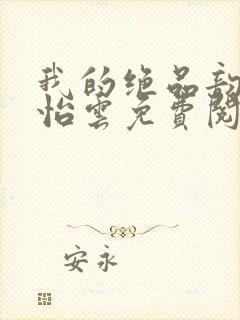 我的绝品
怡雲免費閱
安永